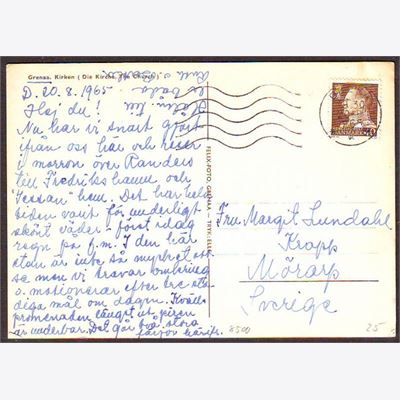 Grenaa. Kirken (Die Kirche, The Church)
D. 20.8.1965
Hej du!
Nu har vi snart gjort
ifrån oss här och reser
i morron över Randers
till Fredrikshamn och
"Sessan" hem. Det har hela
tiden varit för underligt
skönt väder - först idag
regn på f.m. I den här
stan är inte så mycket att
se men vi travar omkring
o. motionerar efter tre sta-
diga mål om dagen. Kvälls-
promenaden längst ut piren
är underbar. Det går två stora
färjor härifr.
FELIX-FOTO, GRENAA
DANMARK
Fru Margit Lundahl
Kropp
Mörarp
Sverige
8500
25